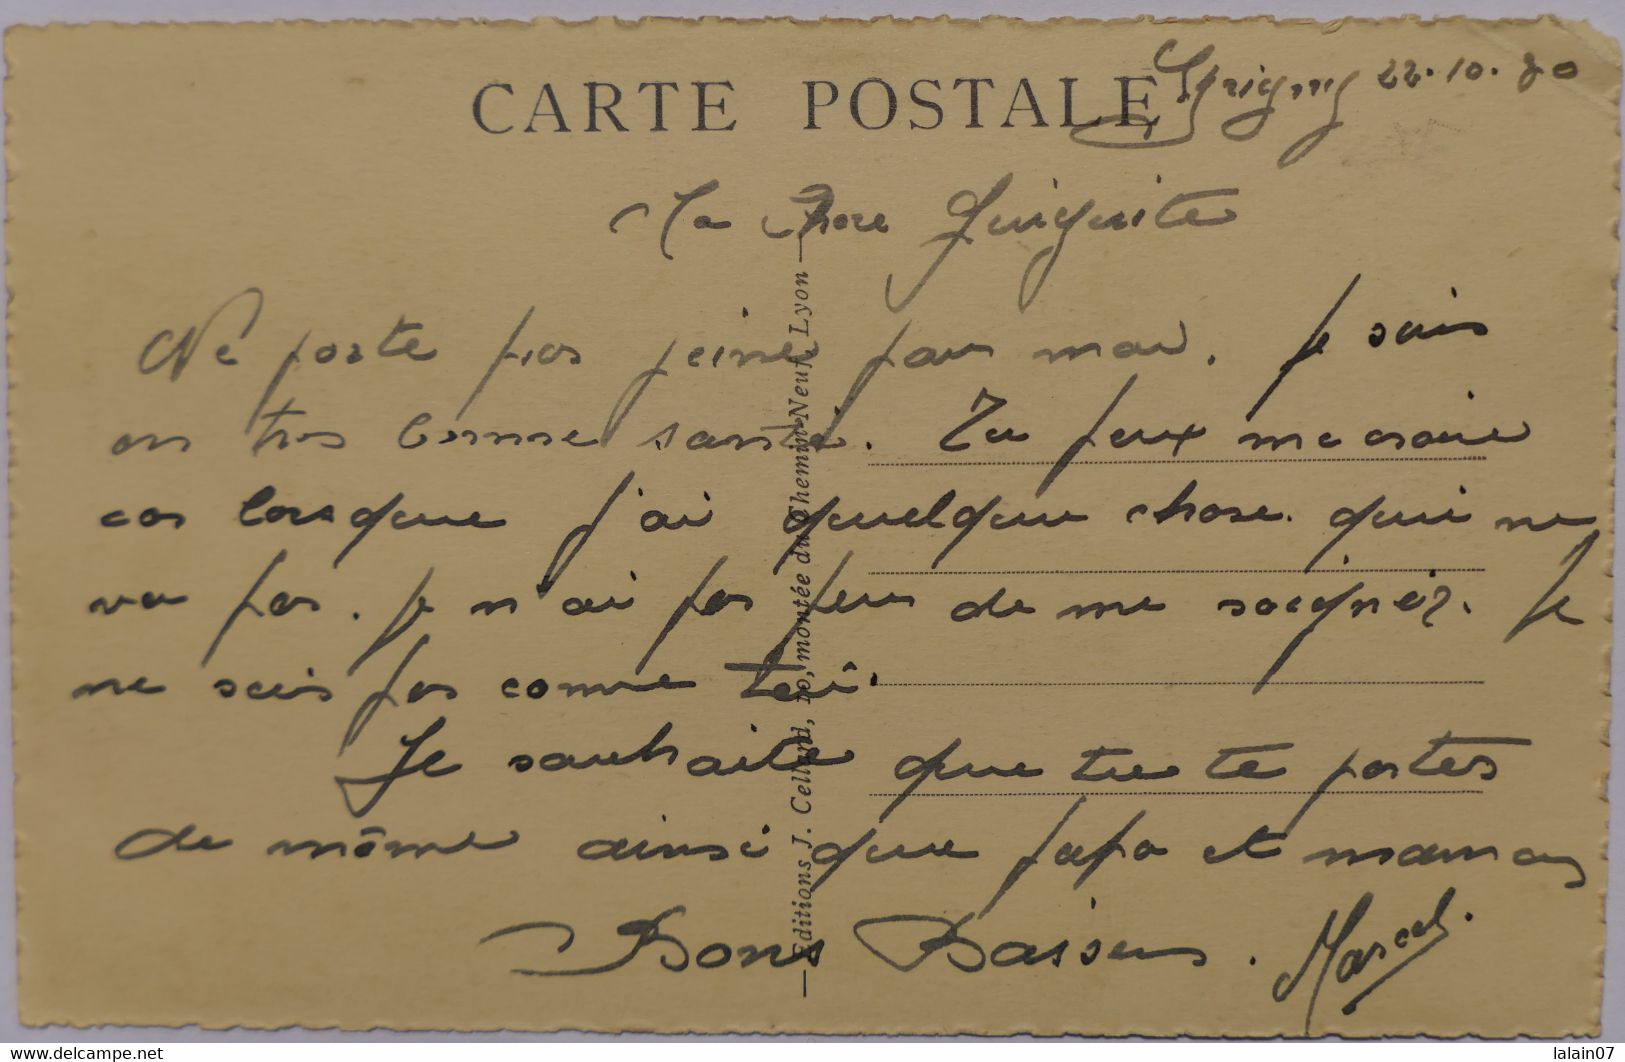 CARTE POSTALE
Grigny 22.10.30
Ma chère Guiguite
Ne porte pas peine pour moi. Je suis
en très bonne santé. Tu peux me croire
car lorsque j'ai quelque chose qui ne
va pas. Je n'ai pas peur de me soigner. Je
ne suis pas comme toi.
Je souhaite que tu te portes
de même ainsi que papa et maman
Bons Baisers. Marcel.
Editions J. Cellard, montée du Chemin-Neuf, Lyon
www.delcampe.net
lalain07